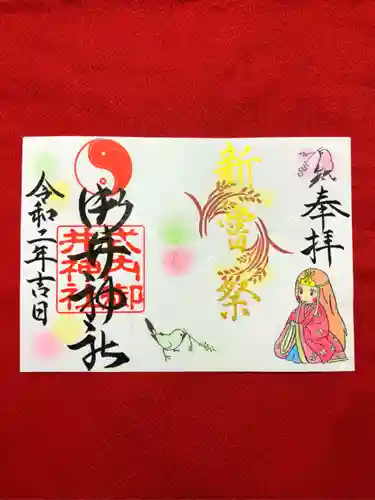 奉拝
新嘗祭
御井神社
式内御
井神社
令和二年吉日